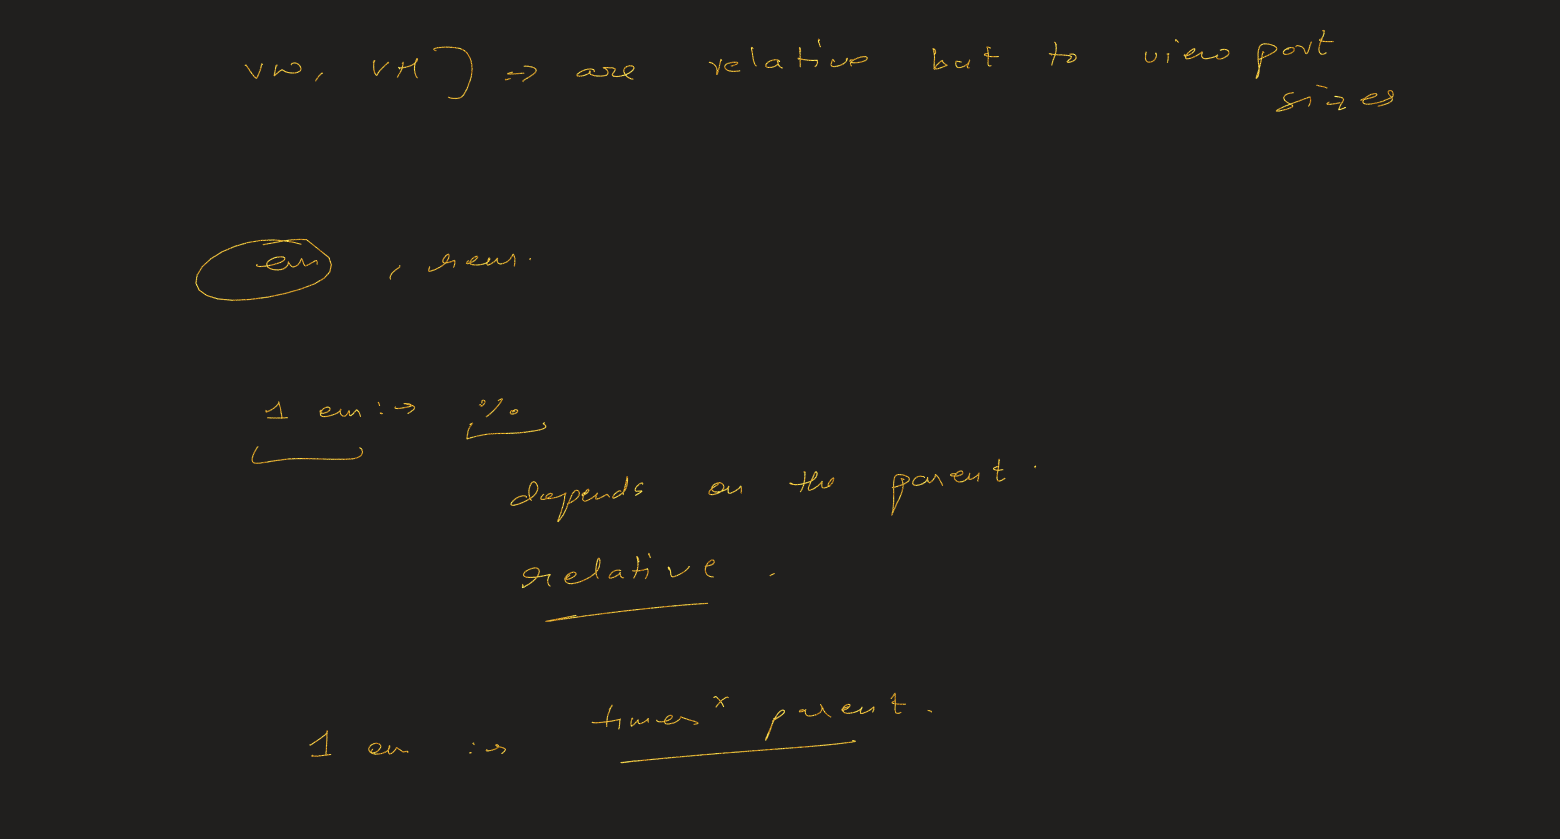 vw, VH ] => are relative but to view port
sizes
em , rem.
1 em :-> %
depends on the parent.
relative.
times x parent.
1 em :->